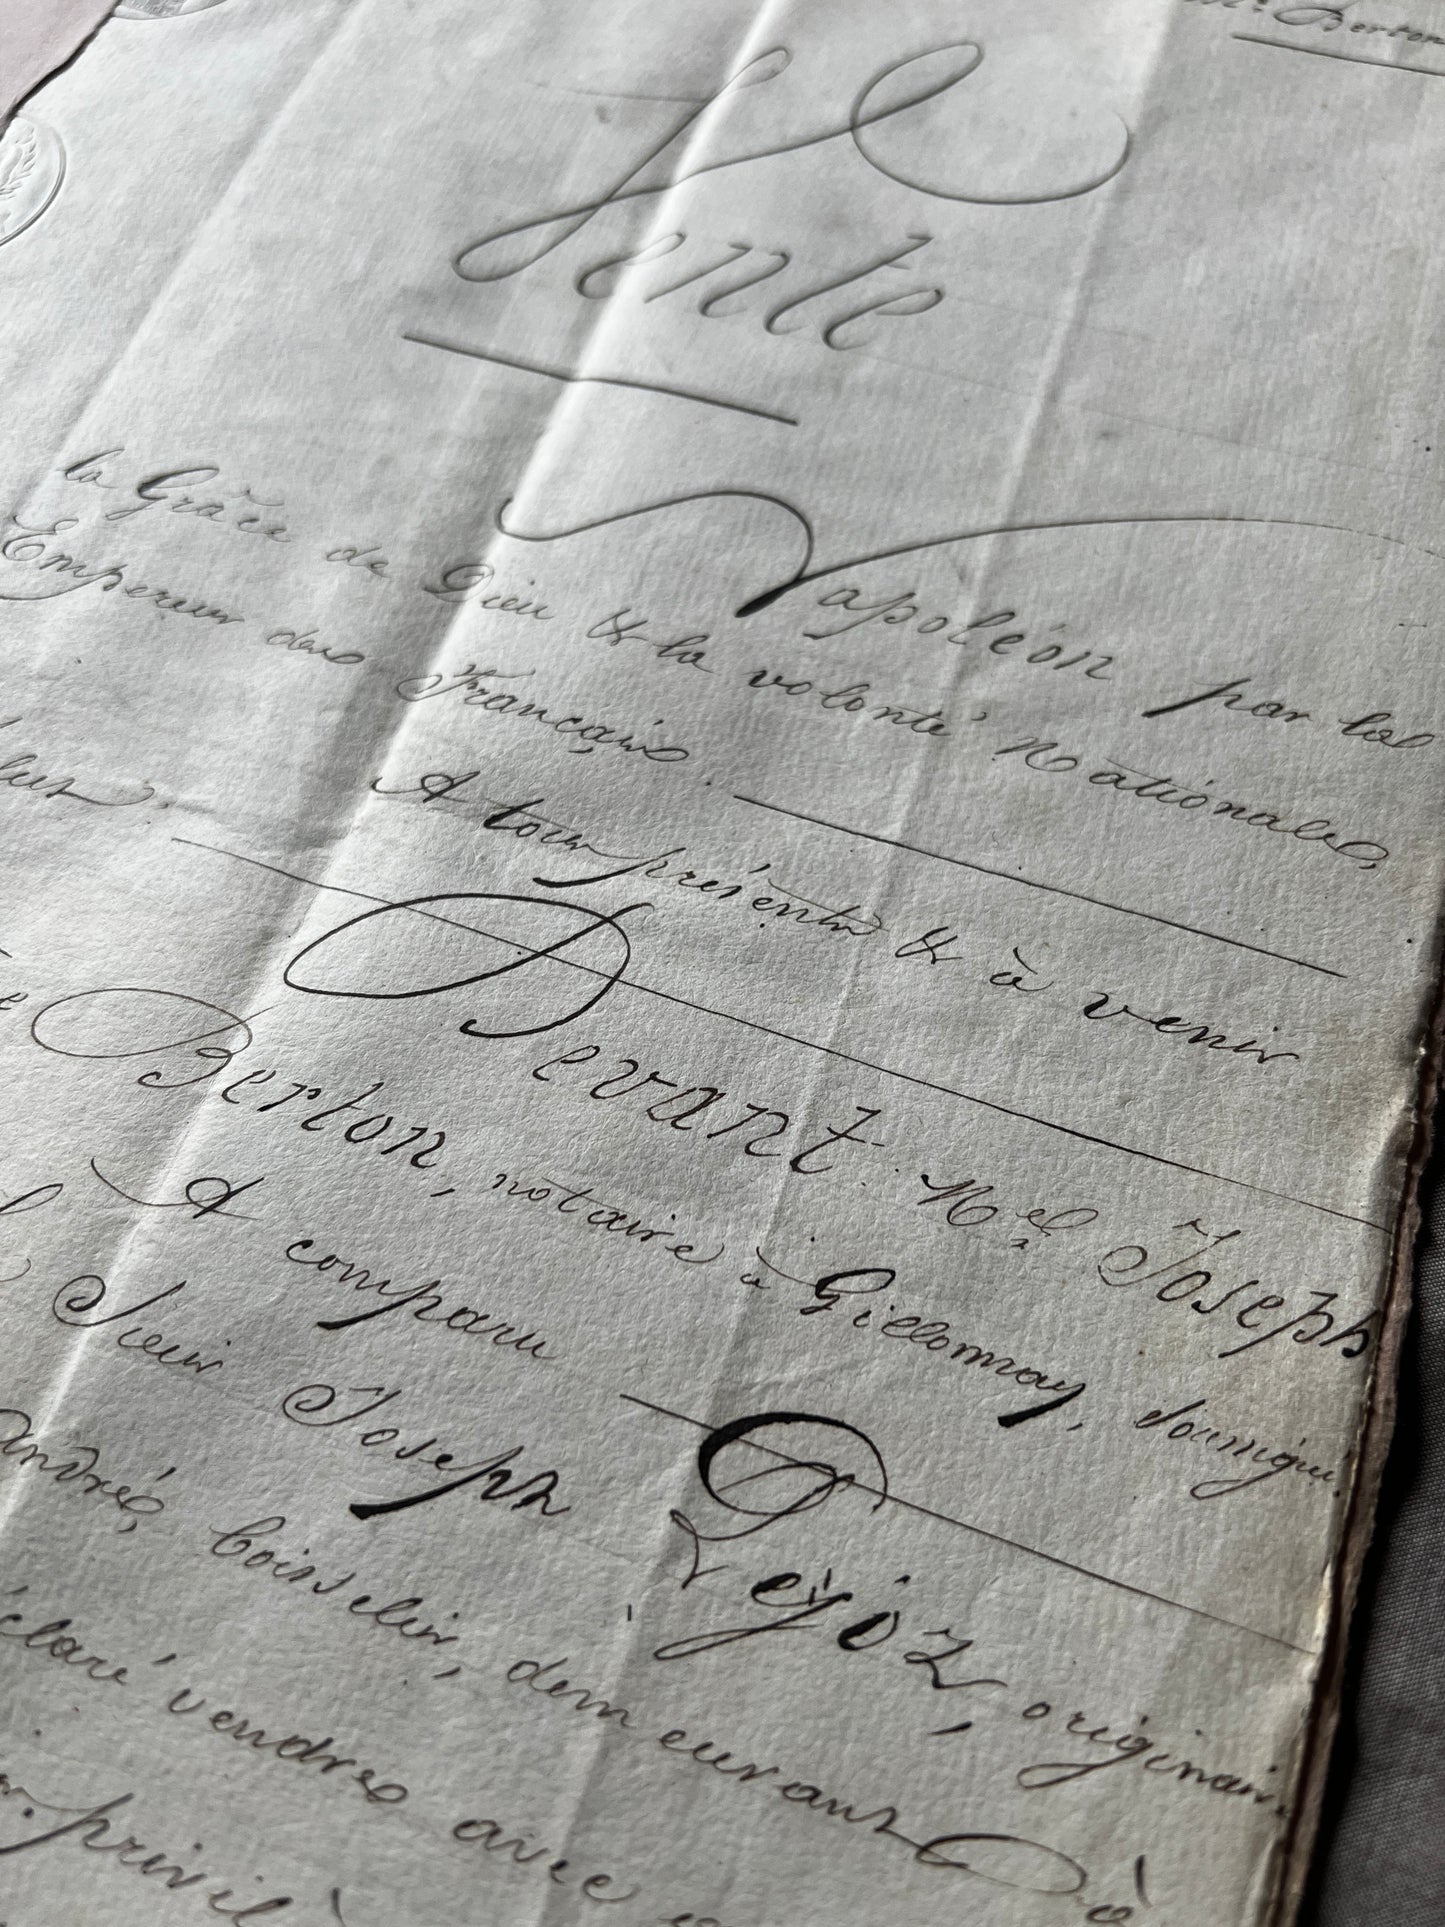 Mᵉ Berton
Vente
Napoléon par la
la Grâce de Dieu & la volonté nationale,
Empereur des Français.
A tous présents & à venir
Devant Mᵉ Joseph
Berton, notaire à Gillonnay,
A comparu
Sieur Joseph Pejoz, originair
andré, demeurant à
éclaré vendre avec
privilè